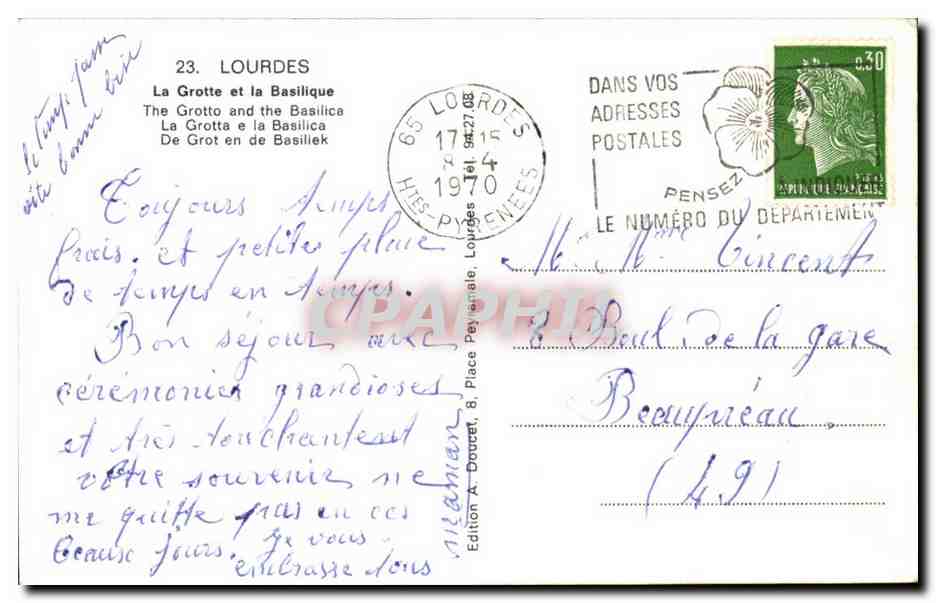 23. LOURDES
La Grotte et la Basilique
The Grotto and the Basilica
La Grotta e la Basilica
De Grot en de Basiliek
le temps passe
vite bonne bise
Toujours temps
frais. et petites pluie
de temps en temps.
Bon séjour avec
cérémonies grandioses
et très touchantest
votre souvenir ne
me quitte pas en ces
beaux jours. Je vous
embrasse tous
maman
Edition A. Doucet, 8, Place Peyramale, Lourdes Tél. 94.27.08
65 LOURDES
17H15
4
1970
HTES-PYRENEES
DANS VOS
ADRESSES
POSTALES
PENSEZ
A INDIQUER
LE NUMÉRO DU DÉPARTEMENT
0.30
REPUBLIQUE FRANÇAISE
Mr Mme Vincent
8 Boul. de la gare
Beaupréau.
(49)
CPAPHIL